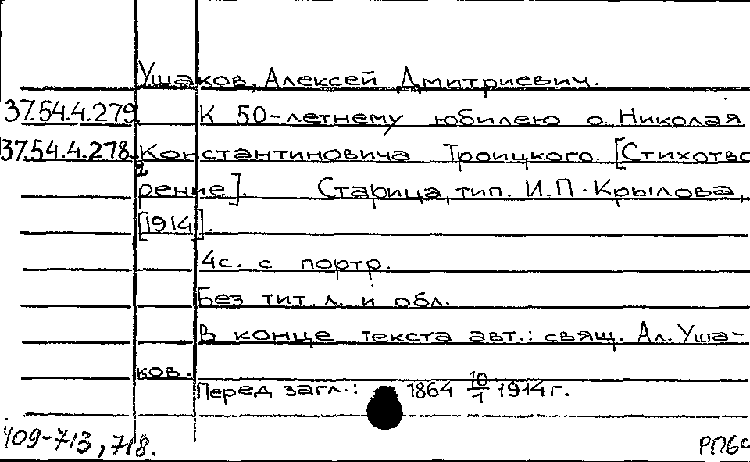 Ушаков, Алексей Дмитриевич.
37.54.4.279 К 50-летнему юбилею о. Николая
37.54.4.278 Константиновича Троицкого [Стихотво
рение]. Старица, тип. И.П. Крылова,
[1914].
4с. с портр.
Без тит. л. и обл.
В конце текста авт.: свящ. Ал. Уша-
ков.
Перед загл.: 1864 10/I 1914 г.
409-713, 718.